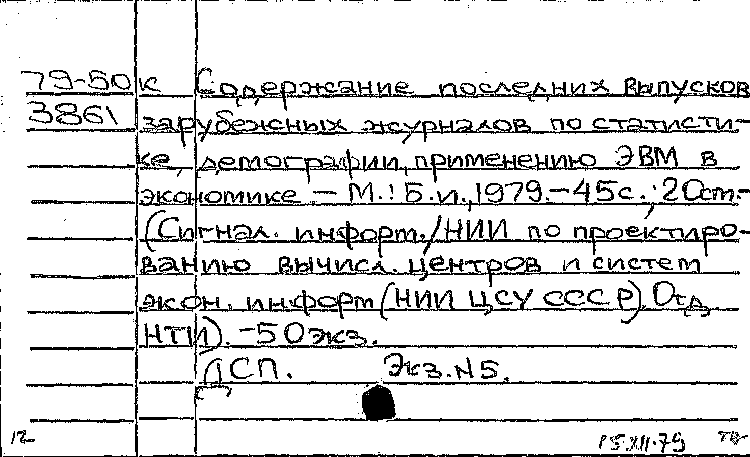 79-50к Содержание последних выпусков
3861 зарубежных журналов по статисти-
ке, демографии, применению ЭВМ в
экономике. - М.: Б.и., 1979. - 45с.; 20см. -
(Сигнал. информ. / НИИ по проектиро-
ванию вычисл. центров и систем
экон. информ (НИИ ЦСУ СССР). Отд
НТИ). - 50экз.
ДСП. Экз. N5.
12 15.XII.79